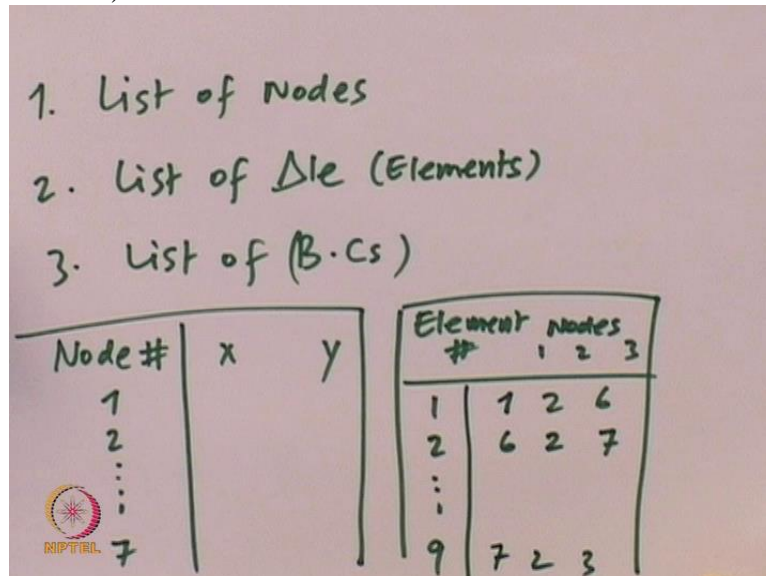 1. List of Nodes
2. List of Δle (Elements)
3. List of (B.Cs)
Node # x y
1
2
⋮
7
Element Nodes
# 1 2 3
1 1 2 6
2 6 2 7
⋮
9 7 2 3
NPTEL